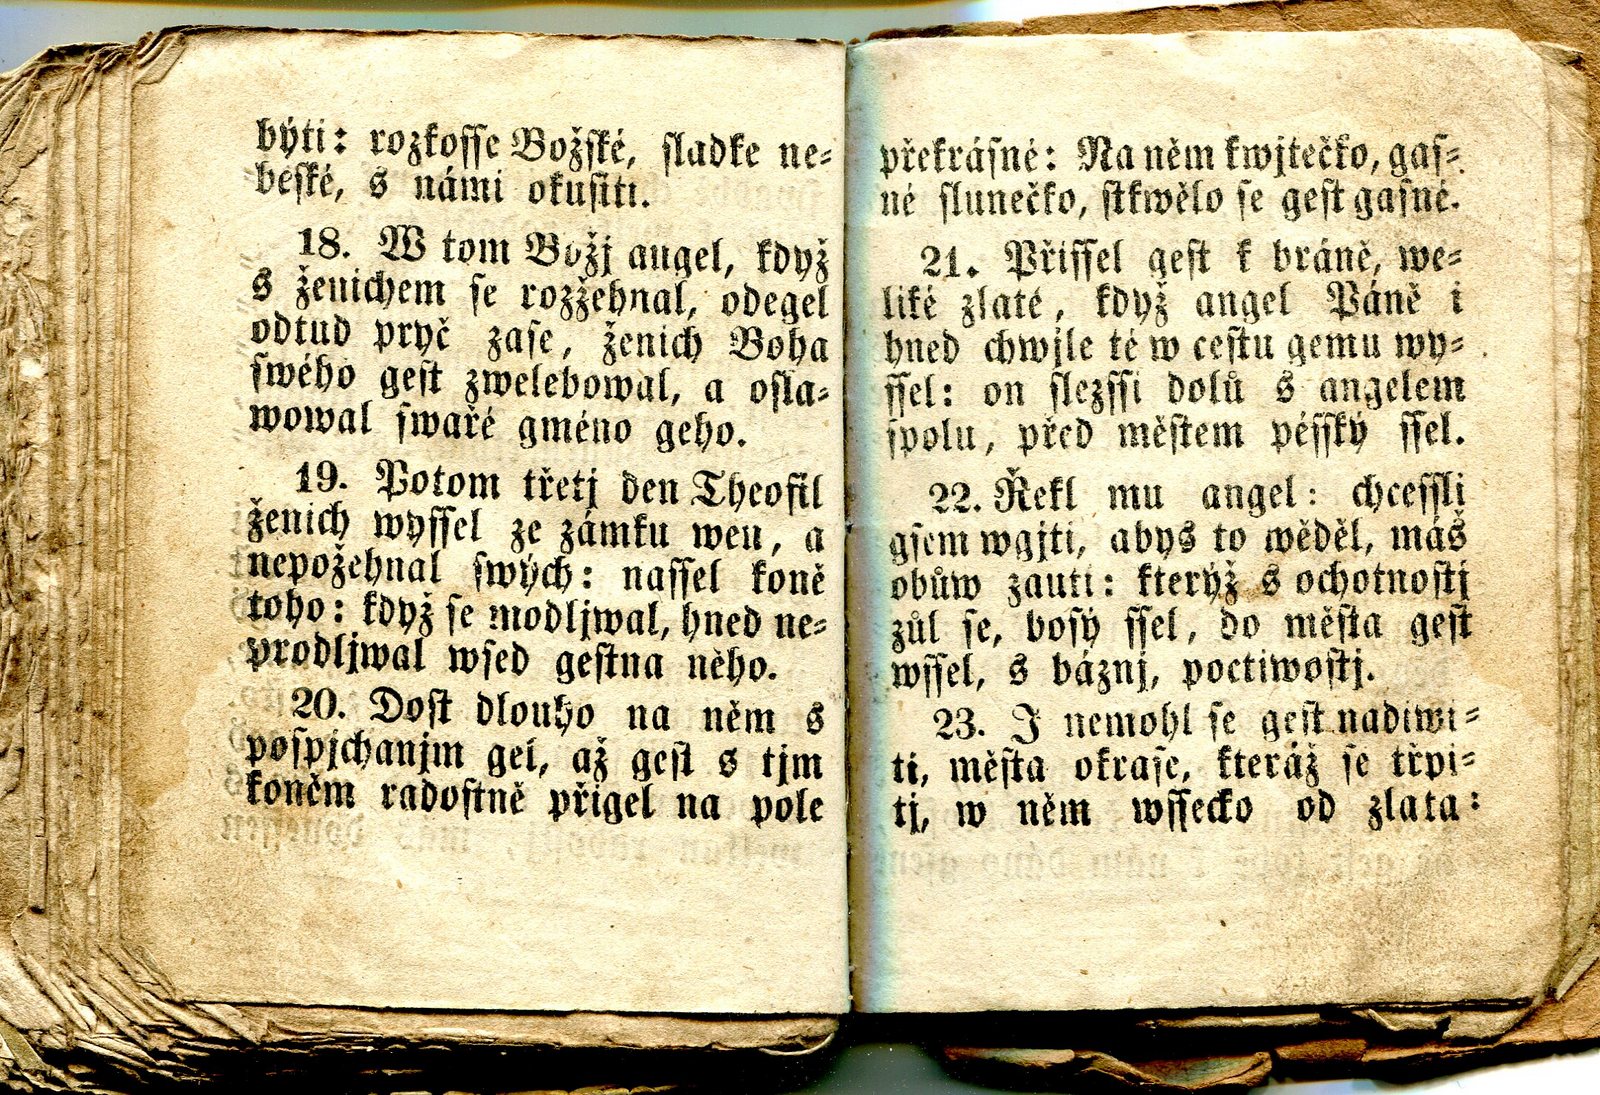 býti: rozkoſſe Božſké, ſladke ne=
béſké, s námi okuſiti.
18. W tom Božj angel, když
s ženichem ſe rozžehnal, odegel
odtud pryč zaſe, ženich Boha
ſwého geſt zwelebowal, a oſla=
wowal ſwaře gméno geho.
19. Potom třetj den Theofil
ženich wyſſel ze zámku wen, a
nepožehnal ſwých: naſſel koně
toho: když ſe modljwal, hned ne=
prodljwal wſed geſtna něho.
20. Doſt dlouho na něm s
poſpjchanjm gel, až geſt s tjm
koněm radoſtně přigel na pole
překráſné: Na něm kwjtečko, gaſ=
né ſlunečko, ſtkwělo ſe geſt gaſné.
21. Přiſſel geſt k bráně, we=
liké zlaté, když angel Páně i
hned chwjle té w ceſtu gemu wy=
ſſel: on ſlezſſi dolů s angelem
ſpolu, před měſtem péſſký ſſel.
22. Řekl mu angel: chceſſli
gſem wgjti, abys to wěděl, máš
obůw zauti: kterýž s ochotnoſtj
zůl ſe, boſý ſſel, do měſta geſt
wſſel, s báznj, poctiwoſtj.
23. J nemohl ſe geſt nadiwi=
ti, měſta okraſe, kteráž ſe třpi=
tj, w něm wſſecko od zlata: